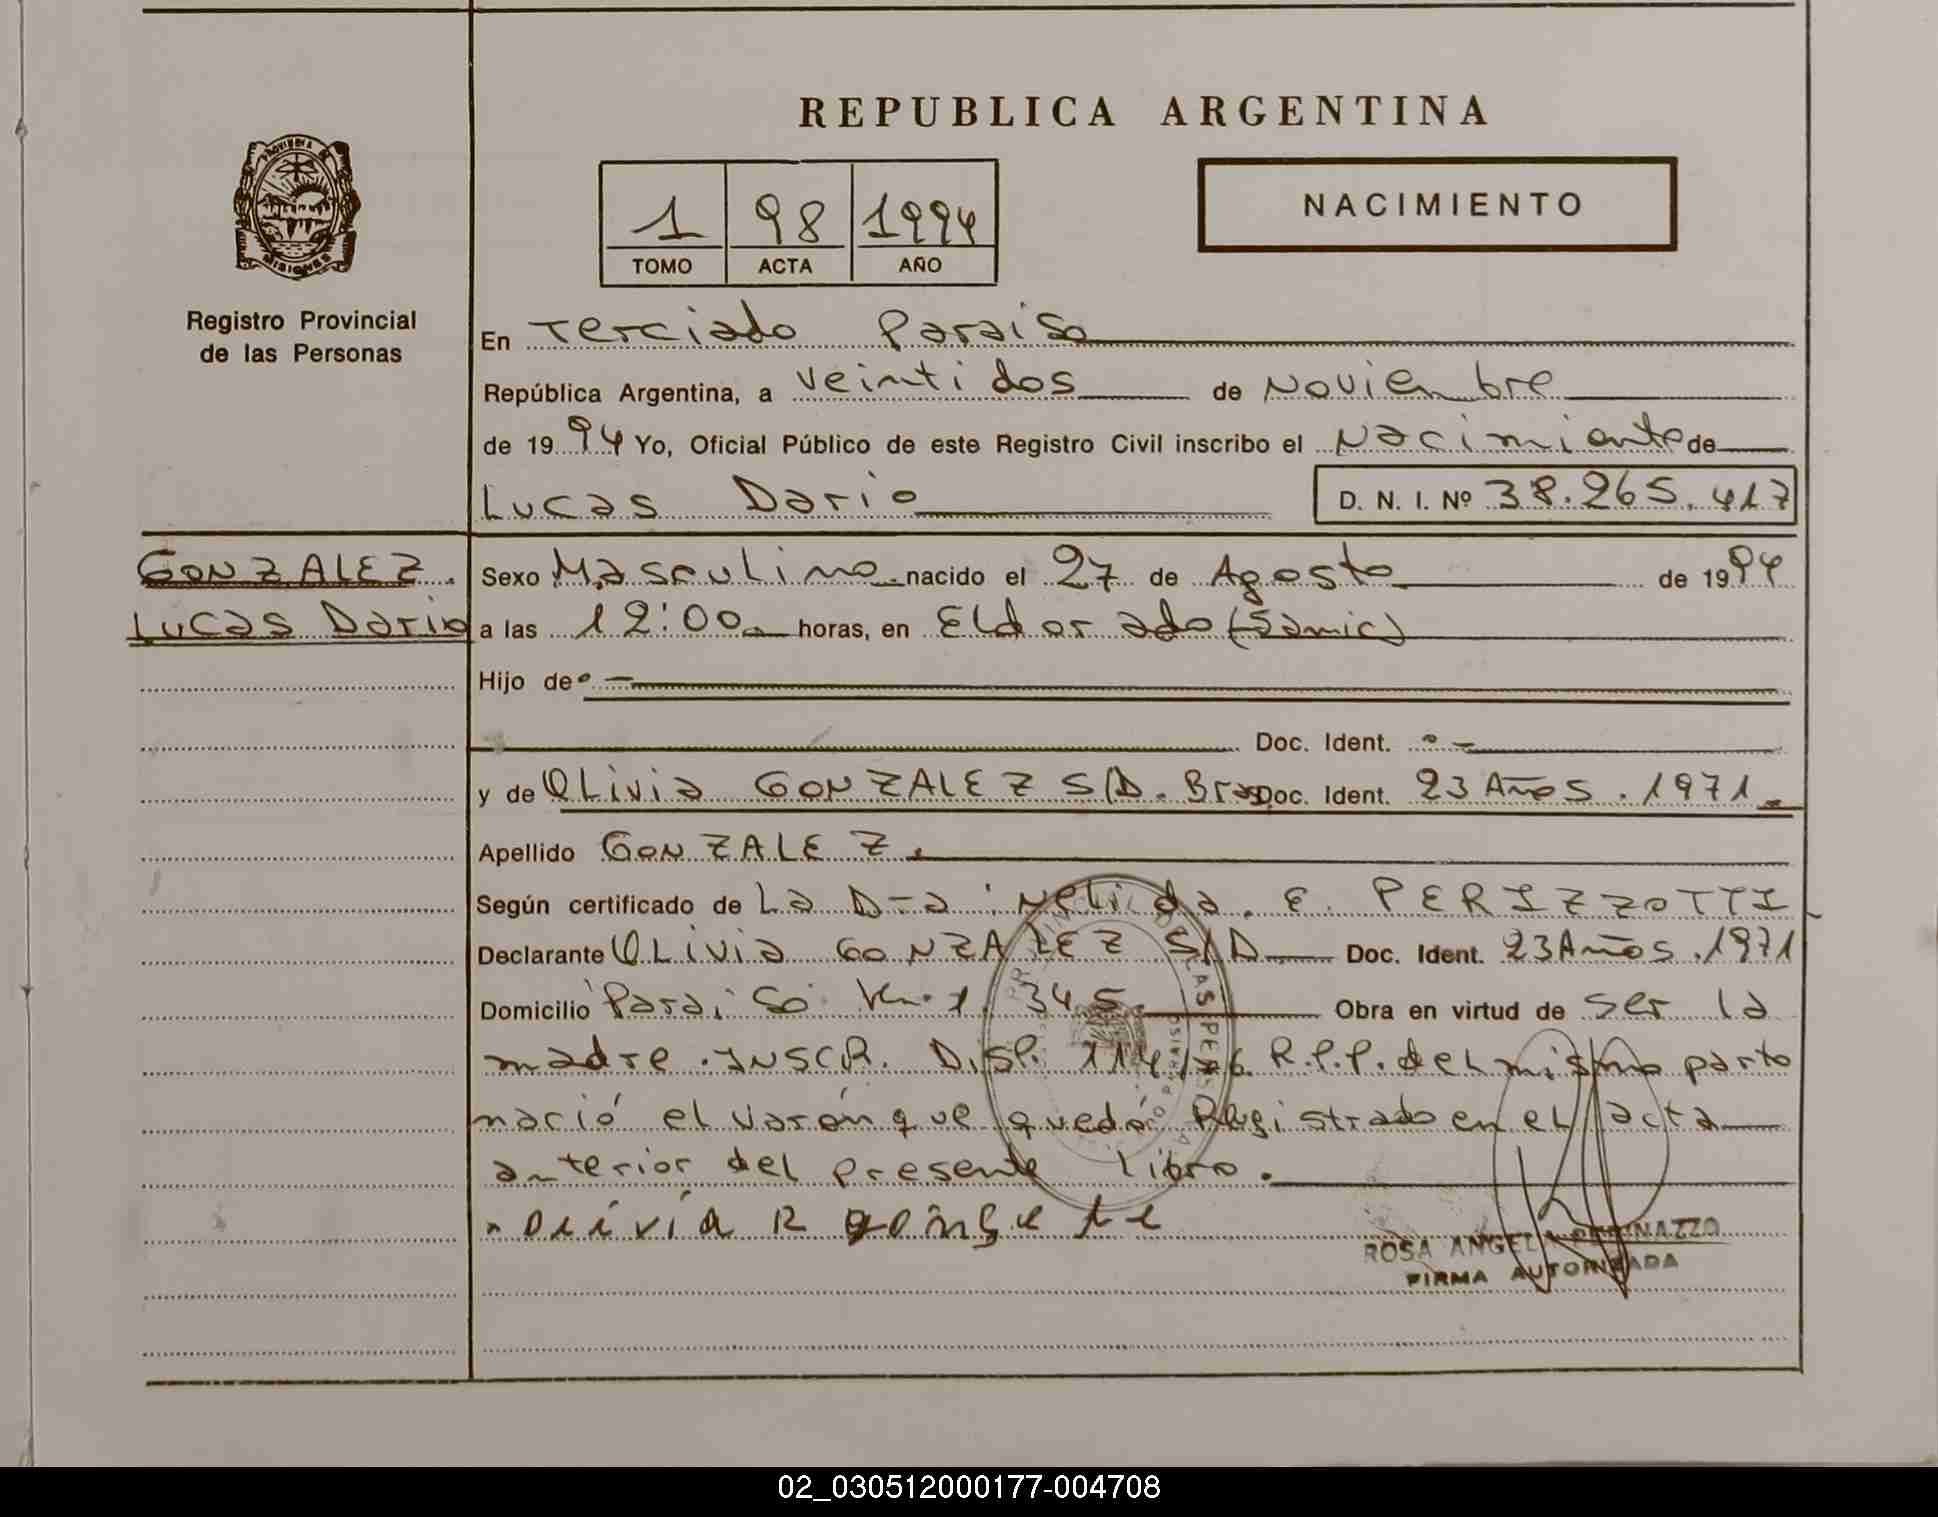 REPUBLICA ARGENTINA
PROVINCIA DE
MISIONES
Registro Provincial
de las Personas
1 98 1994
TOMO ACTA AÑO
NACIMIENTO
En Terciado Paraiso
República Argentina, a veinti dos de Noviembre
de 1994 Yo, Oficial Público de este Registro Civil inscribo el Nacimiento de
Lucas Dario D. N. I. Nº 38.265.417
GONZALEZ.
Lucas Dario
Sexo Masculino nacido el 27 de Agosto de 1994
a las 12:00 horas, en Eldorado (Samic)
Hijo de
Doc. Ident.
y de OLivia GONZALEZ S/D. Bras Doc. Ident. 23 Años. 1971.
Apellido GONZALEZ.
Según certificado de La Dra: Nelida. E. PERIZZOTTI
Declarante OLivia GONZALEZ S/D Doc. Ident. 23 Años. 1971
Domicilio Paraiso Km. 1.345. Obra en virtud de ser la
madre. INSCR. DISP. 114/ R.P.P. del mismo parto
nació el varón que quedó Registrado en el acta
anterior del presente Libro.
olivia R
ROSA ANGEL
FIRMA AUTORIZADA
02_030512000177-004708